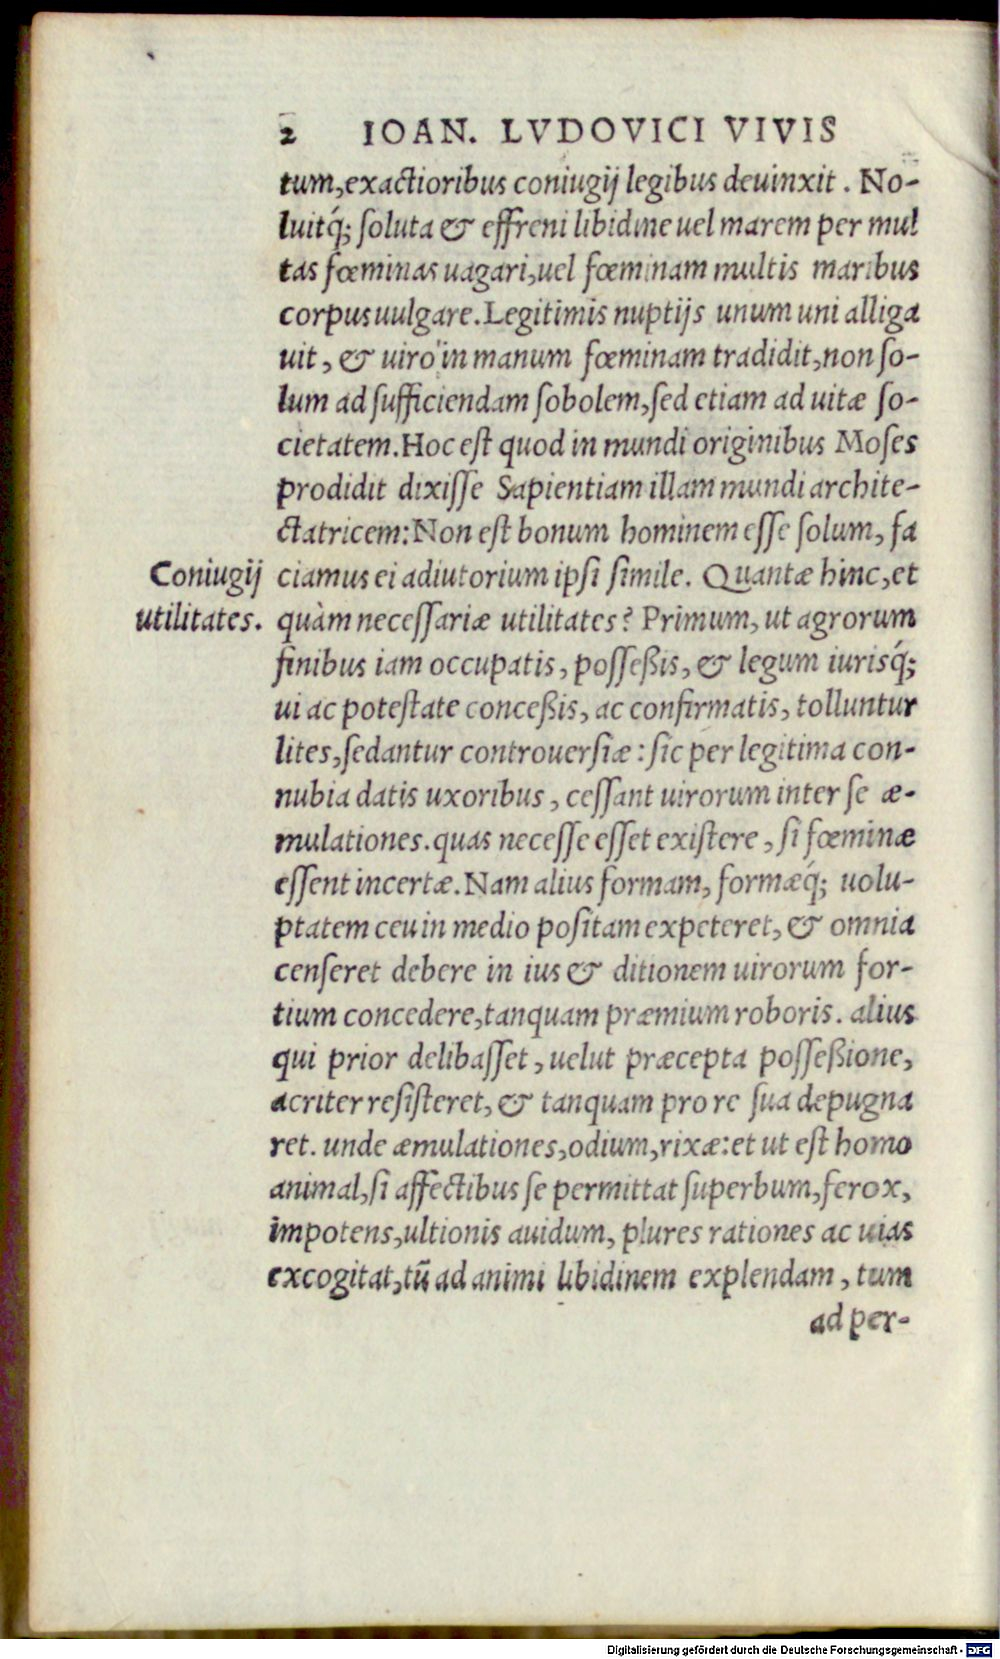 2 IOAN. LVDOVICI VIVIS
tum, exactioribus coniugij legibus deuinxit. No-
luitq́; soluta & effreni libidine uel marem per mul
tas fœminas uagari, uel fœminam multis maribus
corpus uulgare. Legitimis nuptijs unum uni alliga
uit, & uiro in manum fœminam tradidit, non so-
lum ad sufficiendam sobolem, sed etiam ad uitæ so-
cietatem. Hoc est quod in mundi originibus Moses
prodidit dixisse Sapientiam illam mundi archite-
ctatricem: Non est bonum hominem esse solum, fa
Coniugij utilitates.
ciamus ei adiutorium ipsi simile. Quantæ hinc, et
quàm necessariæ utilitates? Primum, ut agrorum
finibus iam occupatis, posseßis, & legum iurisq́;
ui ac potestate conceßis, ac confirmatis, tolluntur
lites, sedantur controuersiæ: sic per legitima con-
nubia datis uxoribus, cessant uirorum inter se æ-
mulationes. quas necesse esset existere, si fœminæ
essent incertæ. Nam alius formam, formæq́; uolu-
ptatem ceu in medio positam expeteret, & omnia
censeret debere in ius & ditionem uirorum for-
tium concedere, tanquam præmium roboris. alius
qui prior delibasset, uelut præcepta posseßione,
acriter resisteret, & tanquam pro re sua depugna
ret. unde æmulationes, odium, rixæ: et ut est homo
animal, si affectibus se permittat superbum, ferox,
impotens, ultionis auidum, plures rationes ac uias
excogitat, tū ad animi libidinem explendam, tum
ad per-
Digitalisierung gefördert durch die Deutsche Forschungsgemeinschaft - DFG